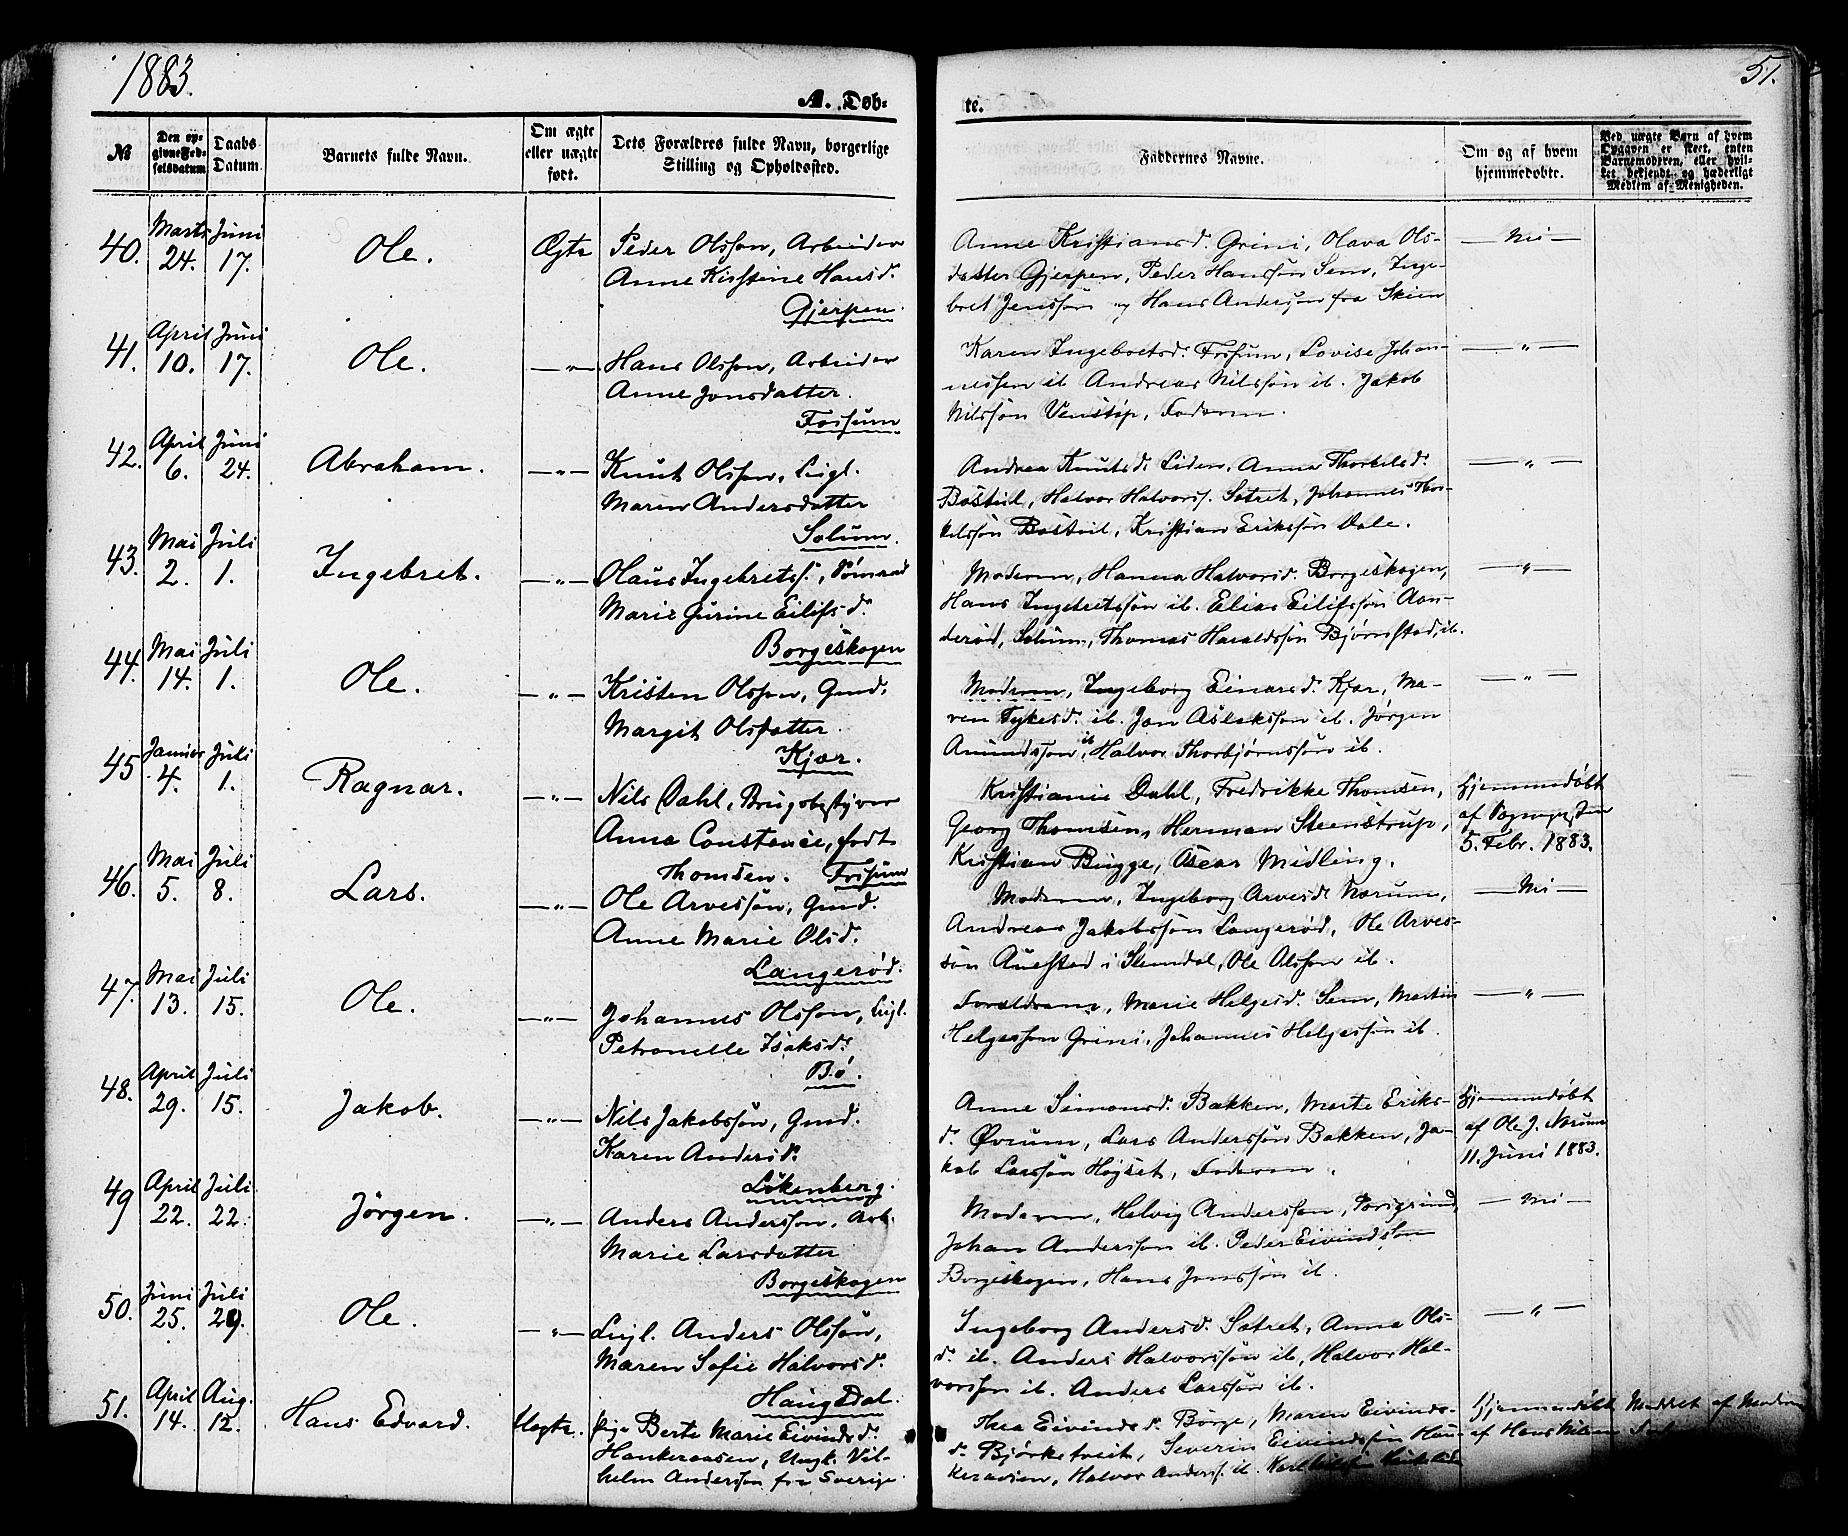 1883.
51.
A. Døb-
te.
№
Den op-
givne Fød-
selsdatum
Daabs-
Datum.
Barnets fulde Navn.
Om ægte
eller uægte
født.
Dets Forældres fulde Navn, borgerlige
Stilling og Opholdssted.
Faddernes Navne.
Om og af hvem
hjemmedøbt.
Ved uægte Barn af hvem
Opgaven er skeet, enten
Barnemoderen, eller hvil-
ket bekjendt og hæderligt
Medlem af Menigheden.
40. Marts 24. Juni 17. Ole. Ægte Peder Olsson, Arbeider
Anne Kirstine Hansd.
Gjerpen.
Anne Kristiansd. Grini, Olava Ols-
datter Gjerpen, Peder Hansson Sem, Inge-
bret Jensson og Hans Andersson fra Skien
— Nei —
41. April 10. Juni 17. Ole. —"— Hans Olsson, Arbeider
Anne Jonsdatter.
Fossum
Karen Ingebretsd. Fossum, Lovise Johan-
nessen ib. Andreas Nilssøn ib. Jakob
Nilssøn Venstøp, Faderen.
—"—
42. April 6. Juni 24. Abraham. —"— Knut Olsson, Leigl.
Maren Andersdatter
Solum.
Andrea Knutsd. Liden, Anna Thorkelsd.
Bøstul, Halvor Halvorss. Sætret, Johannes Thor-
kelssøn Bøstul, Kristian Erikssøn Dale.
—"—
43. Mai 2. Juli 1. Ingebret. —"— Olaus Ingebretss., Tømmd
Marie Gurine Eilifsd.
Borgeskogen
Moderen, Hanna Halvorsd. Borgeskogen,
Hans Ingebretssøn ib. Elias Eilifssøn Aan-
derød, Solum, Thomas Haraldssøn Bjørnstad, ib.
—"—
44. Mai 14. Juli 1. Ole. —"— Kristen Olsson, Gmd.
Margit Olsdatter.
Kjær.
Moderen, Ingeborg Einarsd. Kjær, Ma-
ren Tykesd. ib. Jon Aslaksson ib. Jørgen
Amundssøn ib, Halvor Thorbjørnssøn ib.
—"—
45 Januar 4. Juli 1. Ragnar. —"— Nils Dahl, Brugsbestyrer
Anna Constance, født
Thomsen. Fossum
Kristianie Dahl, Fredrikke Thomsen,
Georg Thomsen, Herman Steenstrup,
Kristian Bugge, Oscar Midling.
Hjemmedøbt
af Sognepresten
5. Febr. 1883.
46. Mai 5. Juli 8. Lars. —"— Ole Arvessøn, Gmd.
Anne Marie Olsd.
Langerød.
Moderen, Ingeborg Arvesd. Nærum,
Andreas Jakobssøn Langerød, Ole Arves-
søn Auestad i Slemdal, Ole Olsson ib.
— Nei —
47. Mai 13. Juli 15. Ole. —"— Johannes Olsson, Leigl.
Petronelle Isaksd.
Bø.
Forældrene, Marie Helgesd. Sem, Martin
Helgessøn Grini, Johannes Helgessøn ib.
—"—
48. April 29. Juli 15. Jakob. —"— Nils Jakobssøn, Gmd.
Karen Andersd.
Løkenberg.
Anne Simonsd. Bakken, Marte Eriks-
d. Øvrum, Lars Anderssøn Bakken, Ja-
kob Larssøn Højset, Faderen.
Hjemmedøbt
af Ole J. Nærum
11. Juni 1883.
49 April 22. Juli 22. Jörgen. —"— Anders Andersson, Arb.
Marie Larsdatter
Borgeskogen
Moderen, Helvig Anderssøn, Porsgrund,
Johan Anderssøn ib. Peder Eivindssøn
Borgeskogen, Hans Jonssøn ib.
— Nei —
50. Juni 25. Juli 29. Ole. —"— Leigl. Anders Olssøn,
Maren Sofie Halvorsd.
Haugdal.
Ingeborg Andersd. Sætret, Anna Ols-
d. ib. Anders Halvorssøn ib, Halvor Hal-
vorssøn ib. Anders Larssøn ib.
—"—
51. April 14. Aug. 12. Hans Edvard. Uegte. Pige Berte Marie Eivindsd.
Haukeraasen, Ungk. Vil-
helm Anderssøn fra Sverige.
Thea Eivindsd. Børge, Maren Eivinds-
d. Bjørketveit, Severin Eivindssøn Hau-
keraasen, Halvor Anderss. ib. Karl
Hjemmedøbt
af Hans Nilsen
Meddelt af Moderen